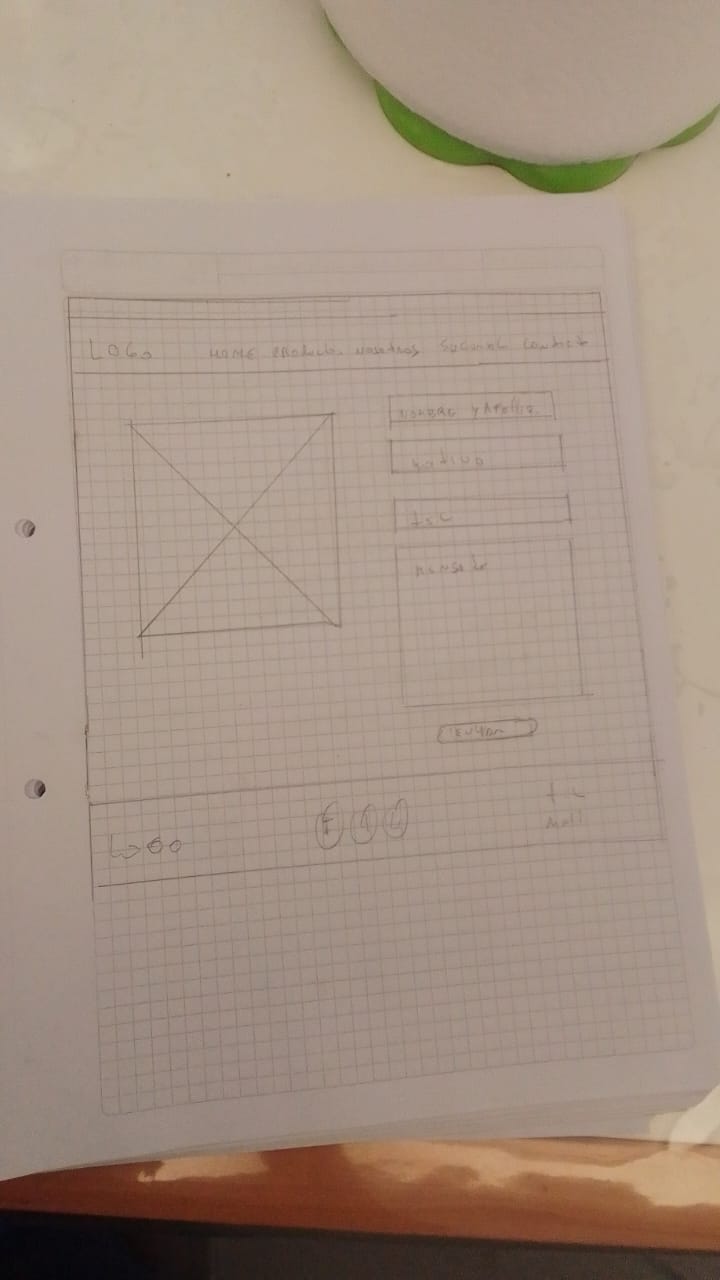 LOGO HOME PRODUCTOS NOSOTROS SUCURSAL CONTACT
NOMBRE Y APELLID
MOTIVO
MENSAJE
ENVIAR
LOGO F
MAIL